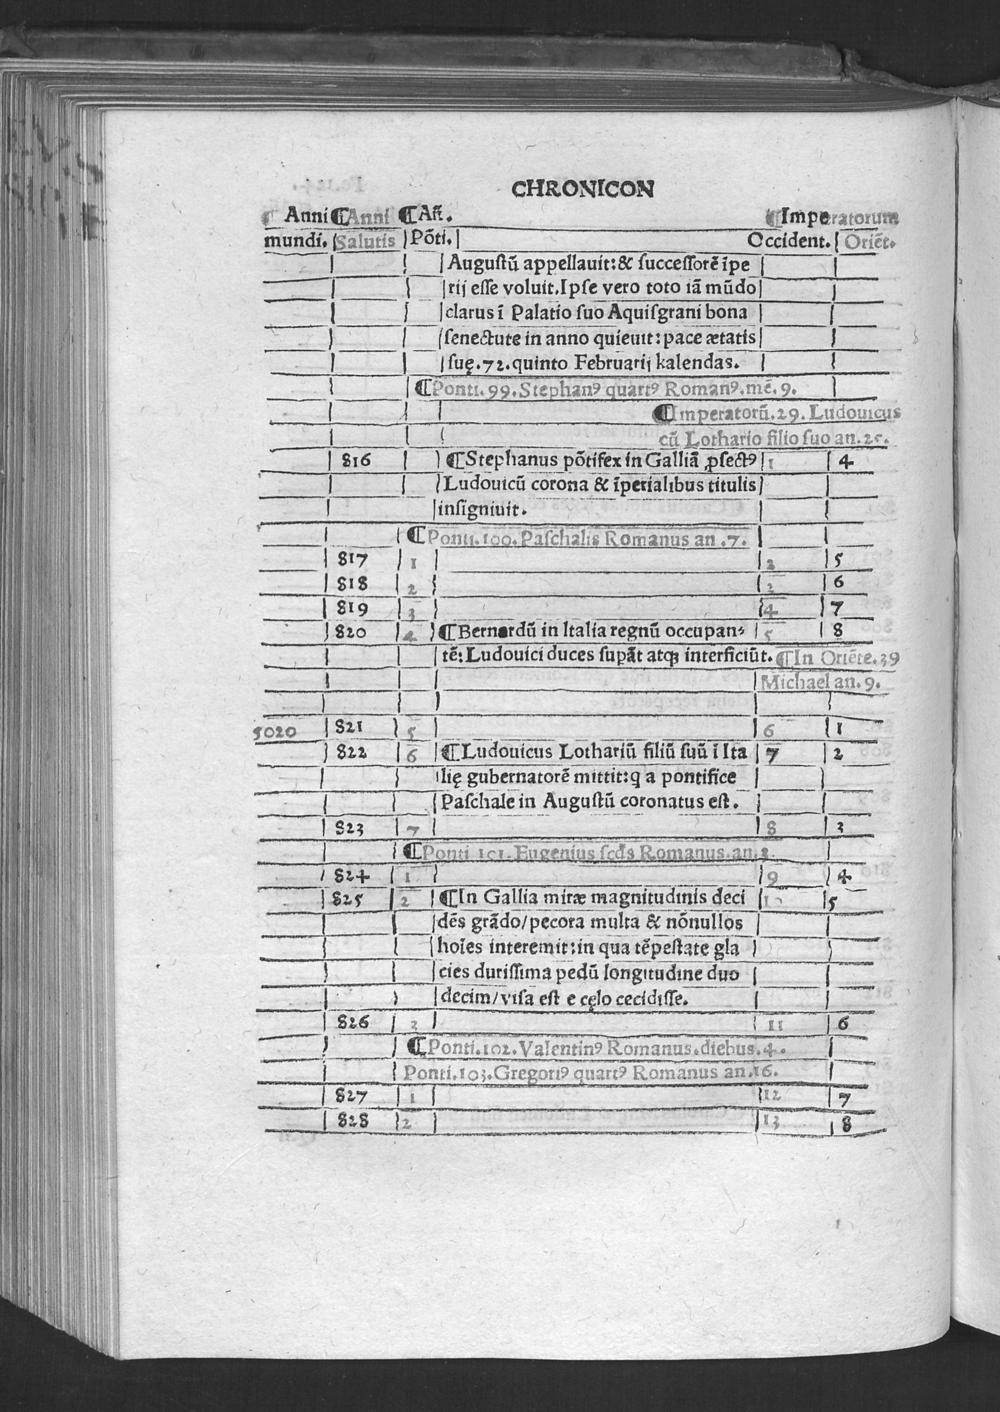 CHRONICON
¶ Anni ¶ Anni ¶ Añ. ¶ Imperatorum
mundi. Salutis Põti. Occident. Oriẽt.
Augustũ appellauit: & successorẽ ĩpe
rij esse voluit. Ipse vero toto iã mũdo
clarus ĩ Palatio suo Aquisgrani bona
senectute in anno quieuit: pace ætatis
suę .72. quinto Februarij kalendas.
¶ Ponti. 99. Stephanꝰ quartꝰ Romanꝰ. mẽ. 9.
¶ Imperatorũ. 29. Ludouicus
cũ Lothario filio suo an. 25.
816 ¶ Stephanus põtifex in Galliã ꝓfectꝰ 1 4
Ludouicũ corona & ĩperialibus titulis
insigniuit.
¶ Ponti. 100. Paschalis Romanus an .7.
817 1 2 5
818 2 3 6
819 3 4 7
820 4 ¶ Bernardũ in Italia regnũ occupan- 5 8
tẽ: Ludouici duces supãt atqꝫ interficiũt. ¶ In Oriẽte. 39
Michael an. 9.
5020 821 5 6 1
822 6 ¶ Ludouicus Lothariũ filiũ suũ ĩ Ita 7 2
lię gubernatorẽ mittit: q̃ a pontifice
Paschale in Augustũ coronatus est.
823 7 8 3
¶ Ponti 101. Eugenius scd̃s Romanus. an. 3.
824 1 9 4
825 2 ¶ In Gallia miræ magnitudinis deci 10 5
dẽs grãdo/pecora multa & nõnullos
hoĩes interemit: in qua tẽpestate gla
cies durissima pedũ longitudine duo
decim/visa est e cęlo cecidisse.
826 3 11 6
¶ Ponti. 102. Valentinꝰ Romanus. diebus. 4.
Ponti. 103. Gregoriꝰ quartꝰ Romanus an. 16.
827 1 12 7
828 2 13 8